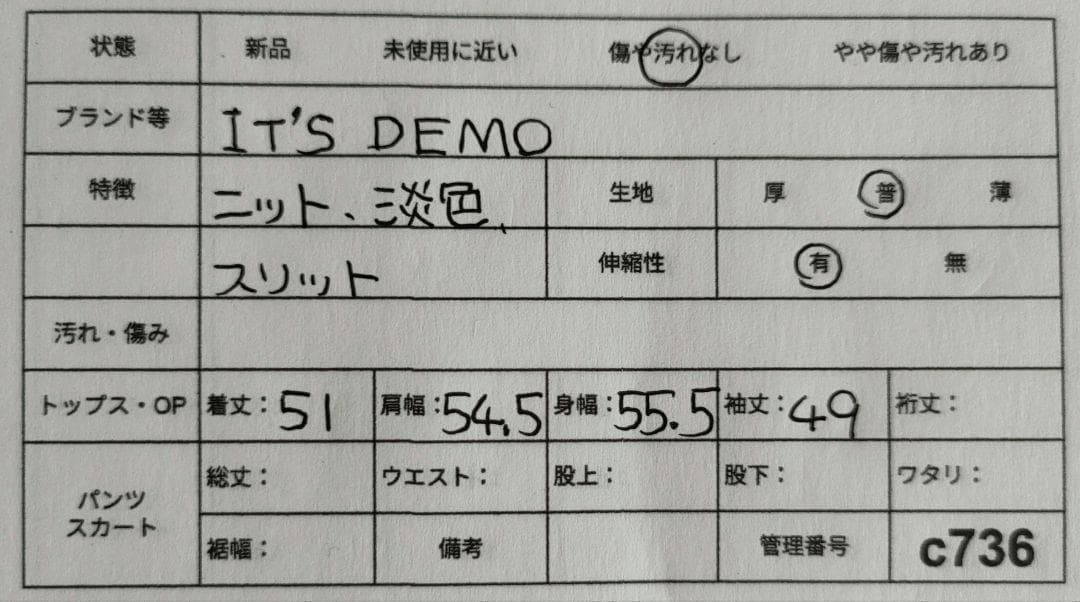 状態 新品 未使用に近い 傷や汚れなし やや傷や汚れあり
ブランド等 IT'S DEMO
特徴 ニット、淡色、 生地 厚 普 薄
スリット 伸縮性 有 無
汚れ・傷み
トップス・OP 着丈：51 肩幅：54.5 身幅：55.5 袖丈：49 裄丈：
パンツ スカート 総丈： ウエスト： 股上： 股下： ワタリ：
裾幅： 備考 管理番号 c736